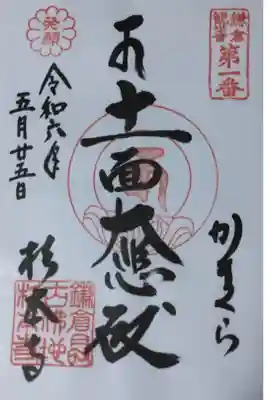 鎌倉
観音
第一番
発願
かまくら
十一面大悲殿
令和六年
五月廿五日
杉本寺
鎌倉最
古佛地
杉本寺